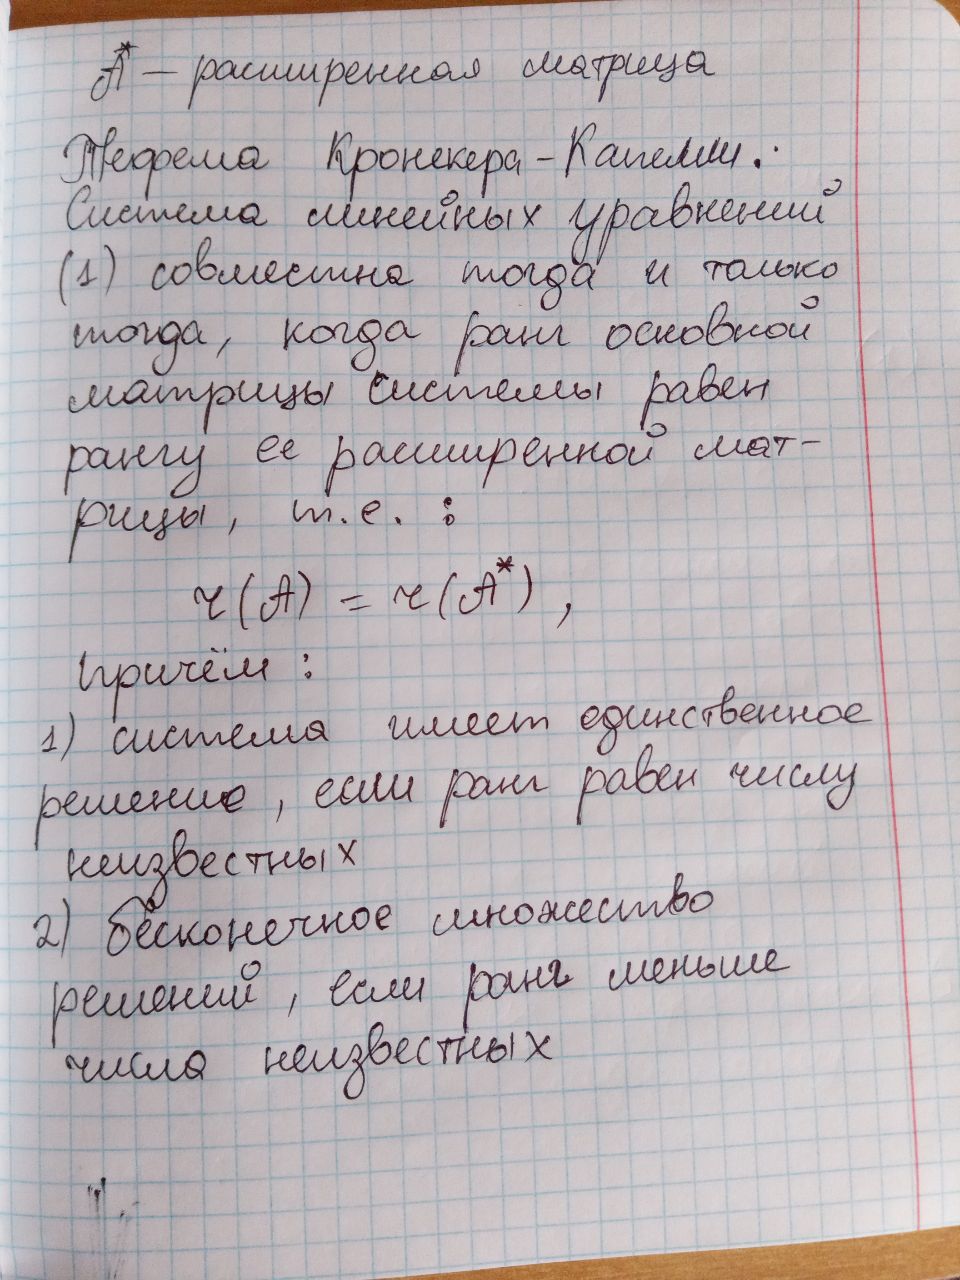 A* — расширенная матрица
Теорема Кронекера-Капелли.:
Система линейных уравнений
(1) совместна тогда и только
тогда, когда ранг основной
матрицы системы равен
рангу ее расширенной мат-
рицы, т.е. :
r(A) = r(A*),
причём :
1) система имеет единственное
решение, если ранг равен числу
неизвестных
2) бесконечное множество
решений, если ранг меньше
числа неизвестных